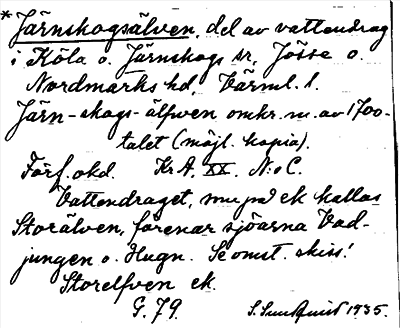 *Järnskogsälven, del av vattendrag
i Köla o. Järnskogs sr, Jösse o.
Nordmarks hd, Värml. l.
Järn-skogs-älfwen omkr. m. av 1700-
talet (möjl. kopia).
Förf. okd. KrA. XX. N:o C.
Vattendraget, som på ek kallas
Storälven, förenar sjöarna Vad-
jungen o. Hugn. Se omst. skiss!
Storelfven ek.
G. 79. 1935.